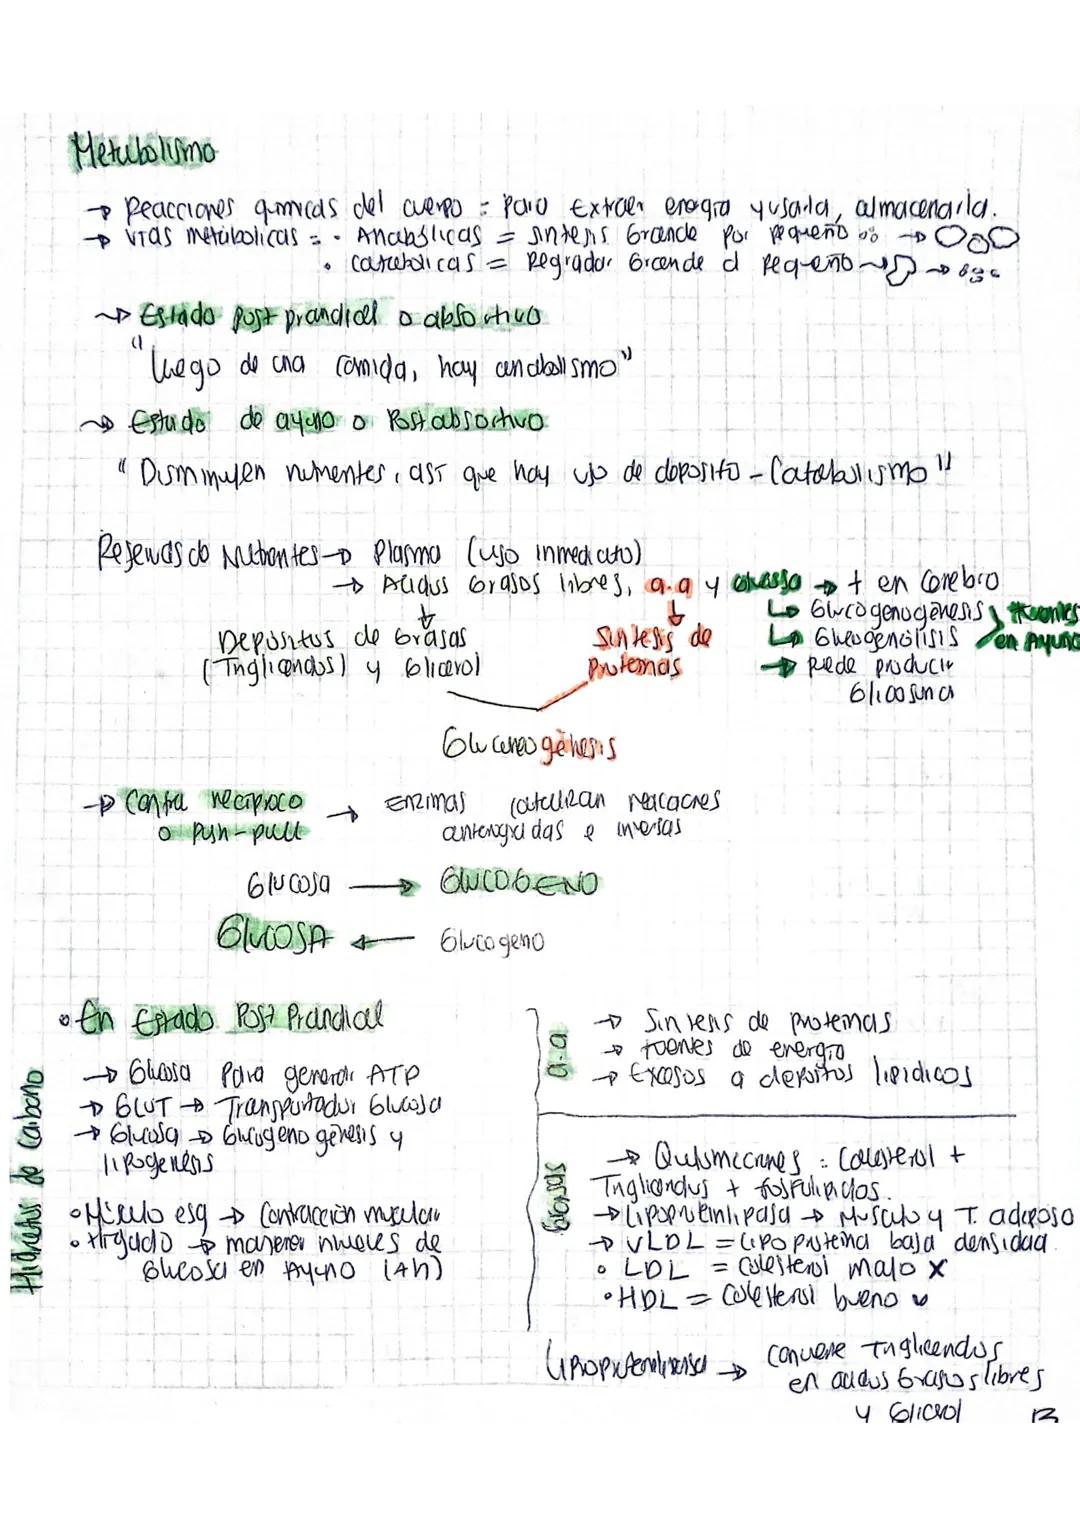 Metabolismo
→ Reacciones quimicas del cuerpo = para Extraer energia y usarla, almacenarla.
→ vias metabolicas = • Anabólicas = sintesis Grande por pequeño →
• catabolicas = Degradar Grande a pequeño → →
→ Estado post prandial o absortivo
"luego de una comida, hay anabolismo"
→ Estado de ayuno o Postabsortivo
"Disminuyen nutrientes, así que hay uso de deposito - Catabolismo"
Reservas de Nutrientes → Plasma (uso inmediato)
→ Acidos Grasos libres, a.a y glucosa → + en Cerebro
↳ Glucogenogénesis
↳ Glucogenólisis
Fuentes en Ayuno
→ puede producir Glicosuria
Depositos de Grasas
(Trigliceridos) y Glicerol
Sintesis de
Proteinas
Gluconeogénesis
→ Control reciproco → Enzimas catalizan reacciones
o Push-pull
e inversas
Glucosa → GLUCOGENO
GLUCOSA ← Glucogeno
• En Estado Post Prandial
Hidratos de Carbono
→ Glucosa Para generar ATP
→ GLUT → Transportador Glucosa
→ Glucosa → Glucogenogénesis y
lipogenesis
• Músculo esq → Contracción muscular
• Higado → mantener niveles de
Glucosa en Ayuno (4h)
a.a
→ Sintesis de proteinas
→ fuentes de energia
→ Excesos a depositos lipidicos
Grasas
→ Quilomicrones = Colesterol +
Trigliceridos + fosfolipidos.
→ Lipoproteinlipasa → Musculo y T. adiposo
→ VLDL = Lipoproteina baja densidad
• LDL = Colesterol malo x
• HDL = Colesterol bueno ✓
→ Convierte Trigliceridos
en acidos Grasos libres
y Glicerol